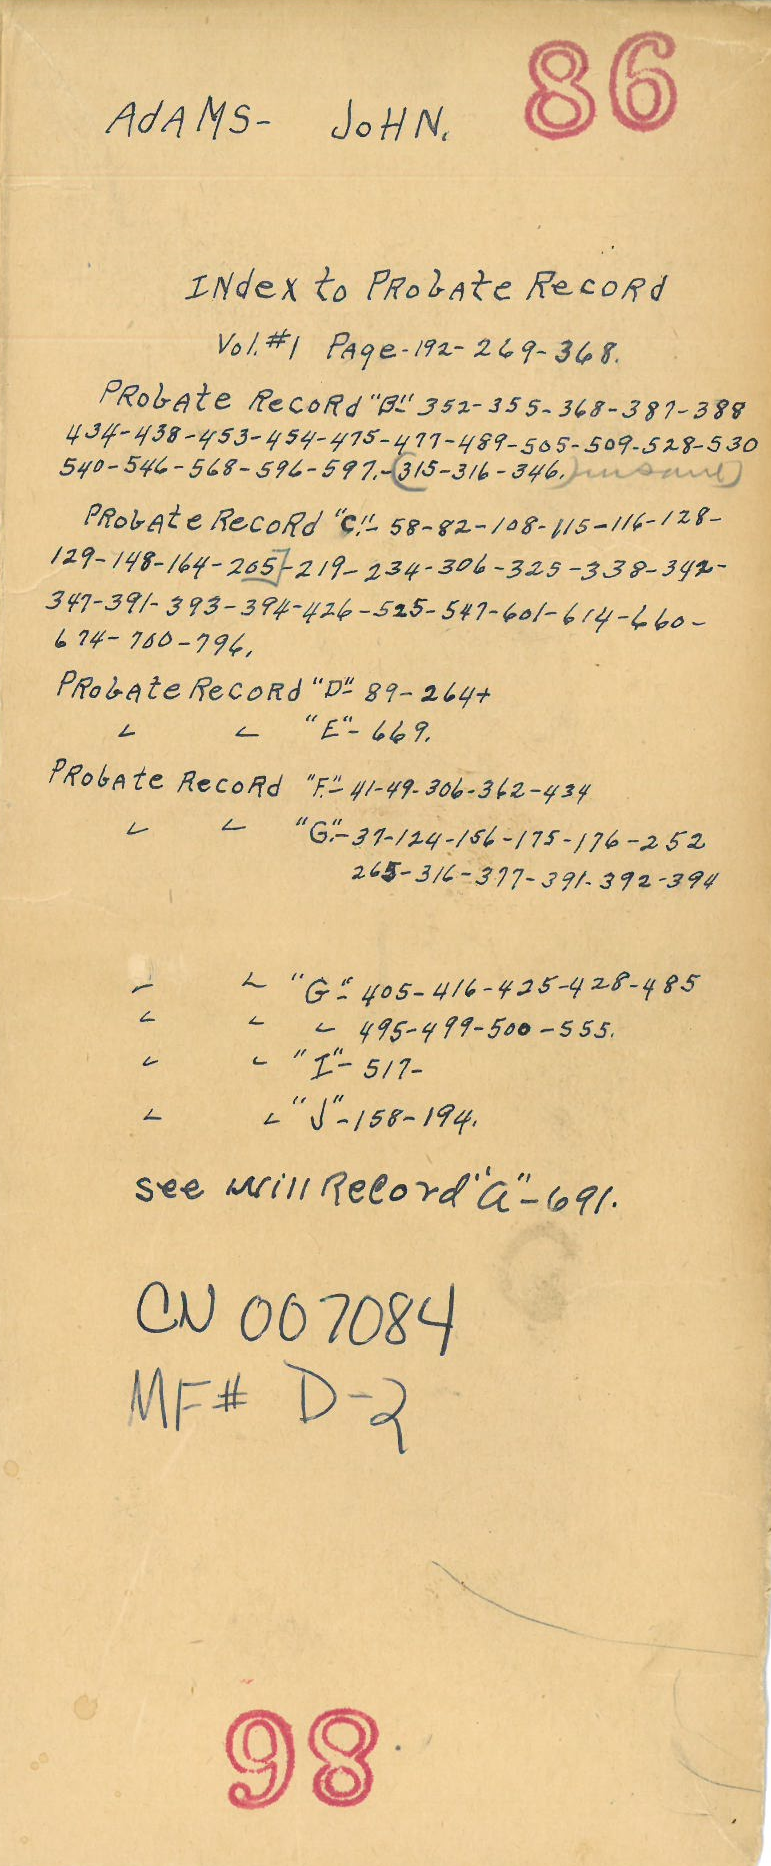 86
ADAMS- JOHN.
INdex to PRobAte RecoRd
Vol. #1 PAge-192-269-368.
PRobAte RecoRd "B"-352-355-368-387-388
434-438-453-454-475-477-489-505-509-528-530
540-546-568-596-597.-(315-316-346.) insane)
PRobAte RecoRd "C"-58-82-108-115-116-128-
129-148-164-205-219-234-306-325-338-342-
347-391-393-394-426-525-547-601-614-660-
674-700-796.
PRobAte RecoRd "D"-89-264+
" " "E"-669.
PRobAte RecoRd "F"-41-49-306-362-434
" " "G"-37-124-156-175-176-252
265-316-377-391-392-394
" " "G"-405-416-425-428-485
" " " 495-499-500-555.
" " "I"-517-
" " "J"-158-194.
see will Record "a"-691.
CN 007084
MF# D-2
98